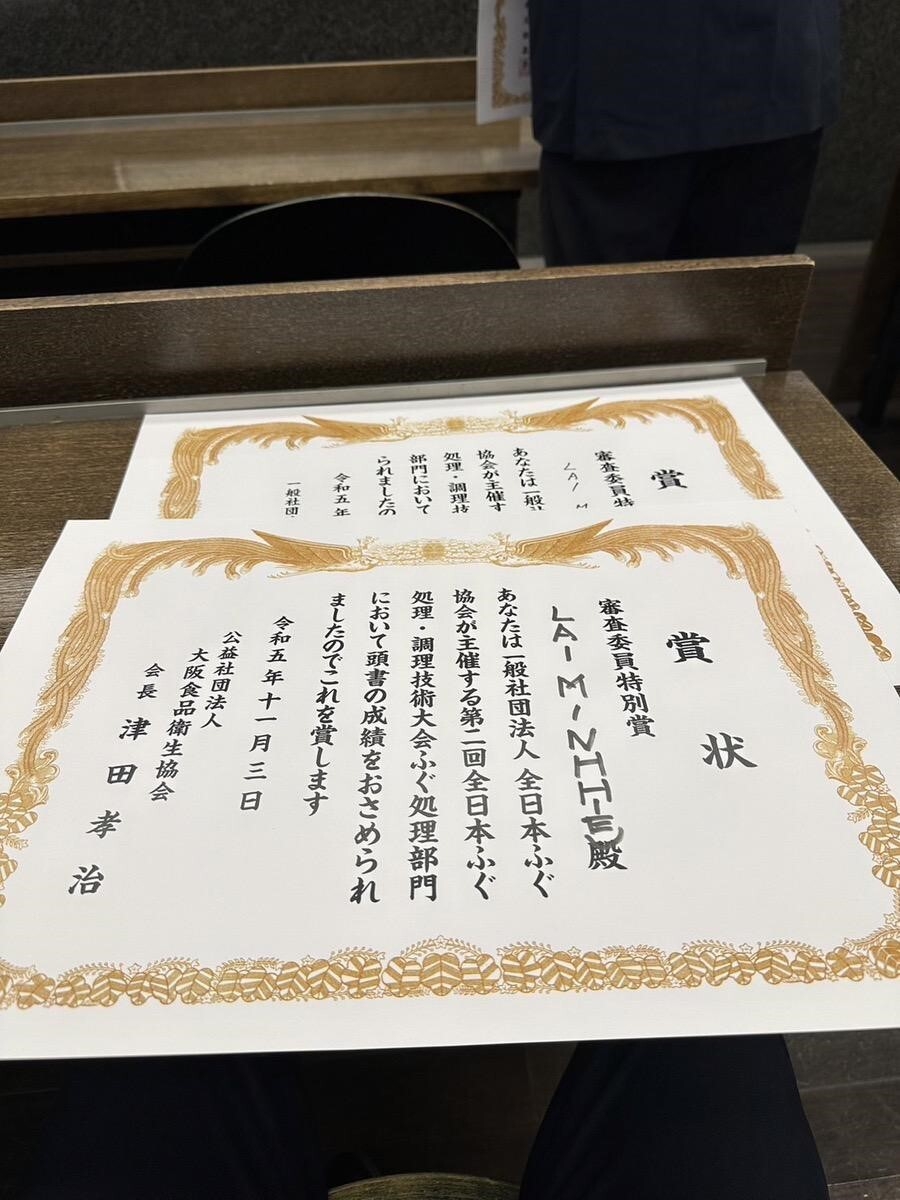 賞状
審査委員特別賞
LAI MINHHIE殿
あなたは一般社団法人 全日本ふぐ
協会が主催する第二回全日本ふぐ
処理・調理技術大会ふぐ処理部門
において頭書の成績をおさめられ
ましたのでこれを賞します
令和五年十一月三日
公益社団法人
大阪食品衛生協会
会長 津田孝治
賞
審査委員特
LAI M
あなたは一般社
協会が主催す
処理・調理技
部門において
られましたの
令和五年
一般社団